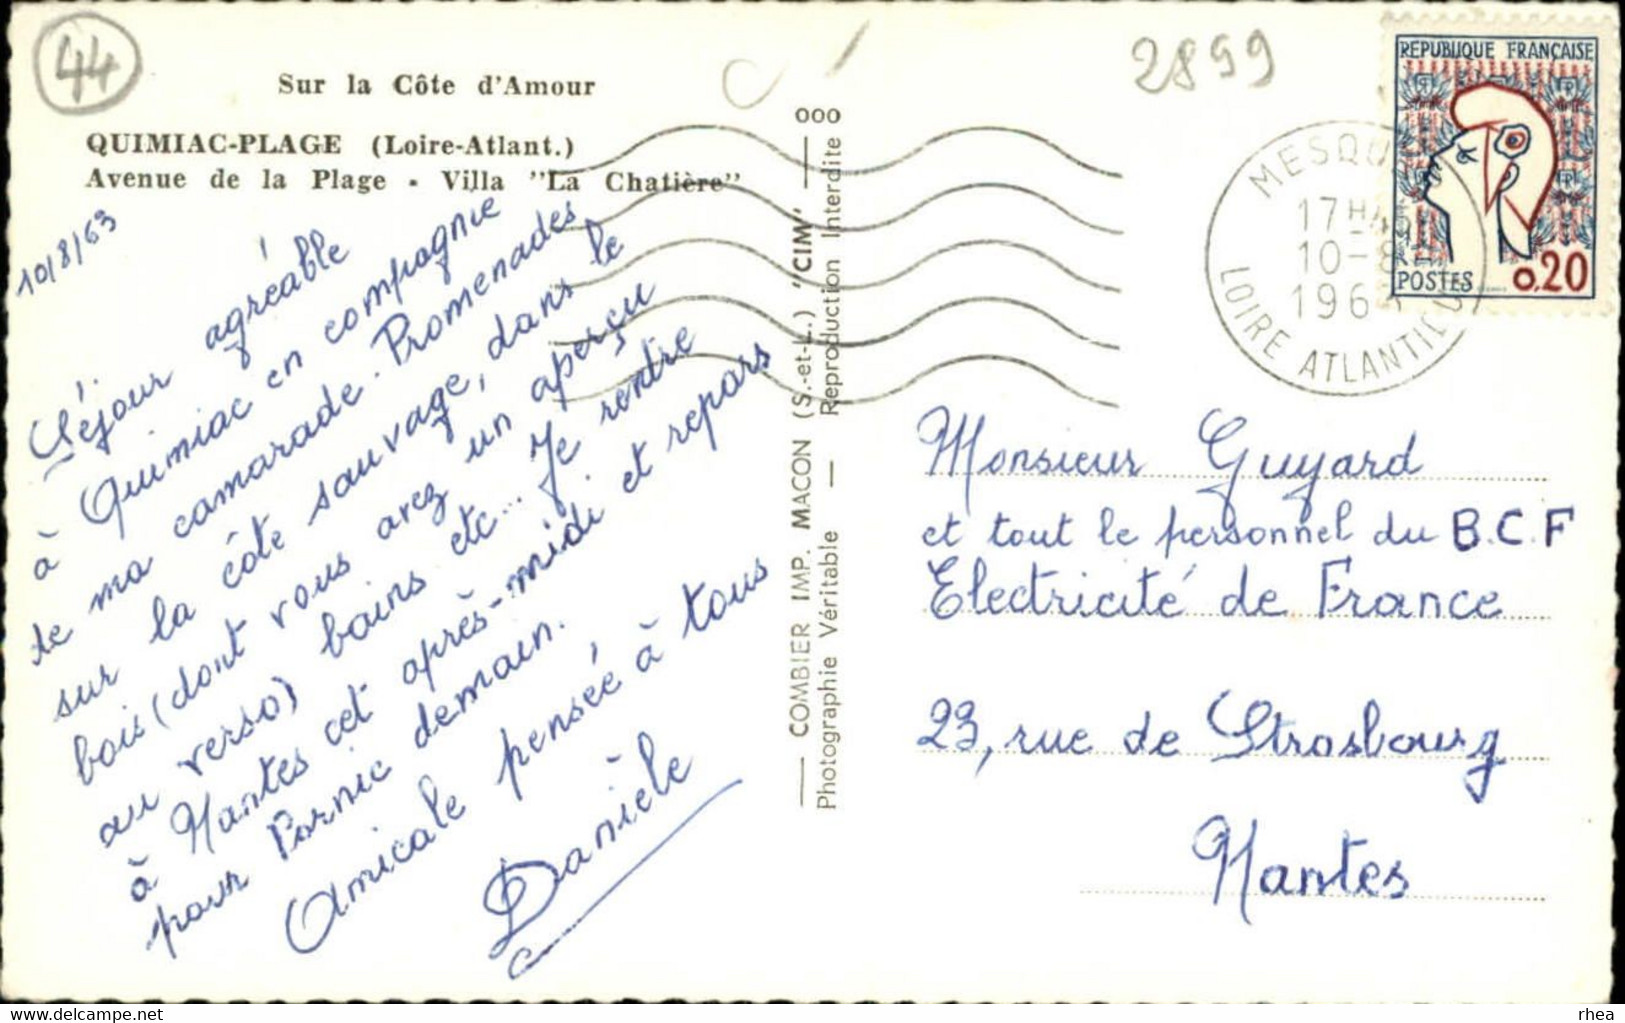 44
2899
Sur la Côte d'Amour
QUIMIAC-PLAGE (Loire-Atlant.)
Avenue de la Plage - Villa "La Chatière"
10/8/63
Séjour agréable
à Quimiac en compagnie
de ma camarade. Promenades
sur la côte sauvage, dans le
bois (dont vous avez un aperçu
au verso) bains etc... Je rentre
à Nantes cet après-midi et repars
pour Pornic demain.
Amicale pensée à tous
Danièle
COMBIER IMP. MACON (S.-et-L.) "CIM"
Photographie Véritable — Reproduction Interdite
000
MESQU
17H45
10-8
196
LOIRE ATLANTIQU
REPUBLIQUE FRANÇAISE
POSTES 0,20
Monsieur Guyard
et tout le personnel du B.C.F
Electricité de France
23, rue de Strasbourg
Nantes
delcampe.net
rhea